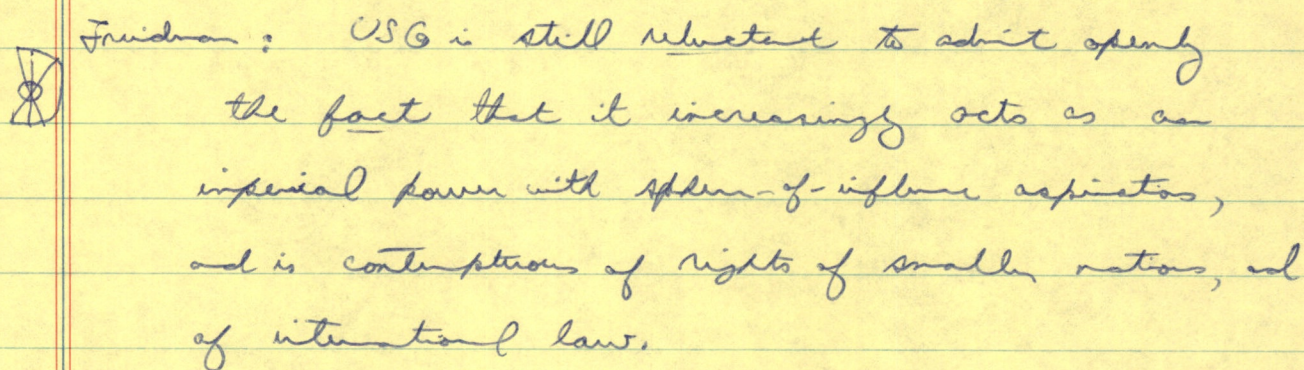 Friedman: USG is still reluctant to admit openly
the fact that it increasingly acts as an
imperial power with sphere-of-influence aspirations,
and is contemptuous of rights of smaller nations, and
of international law.